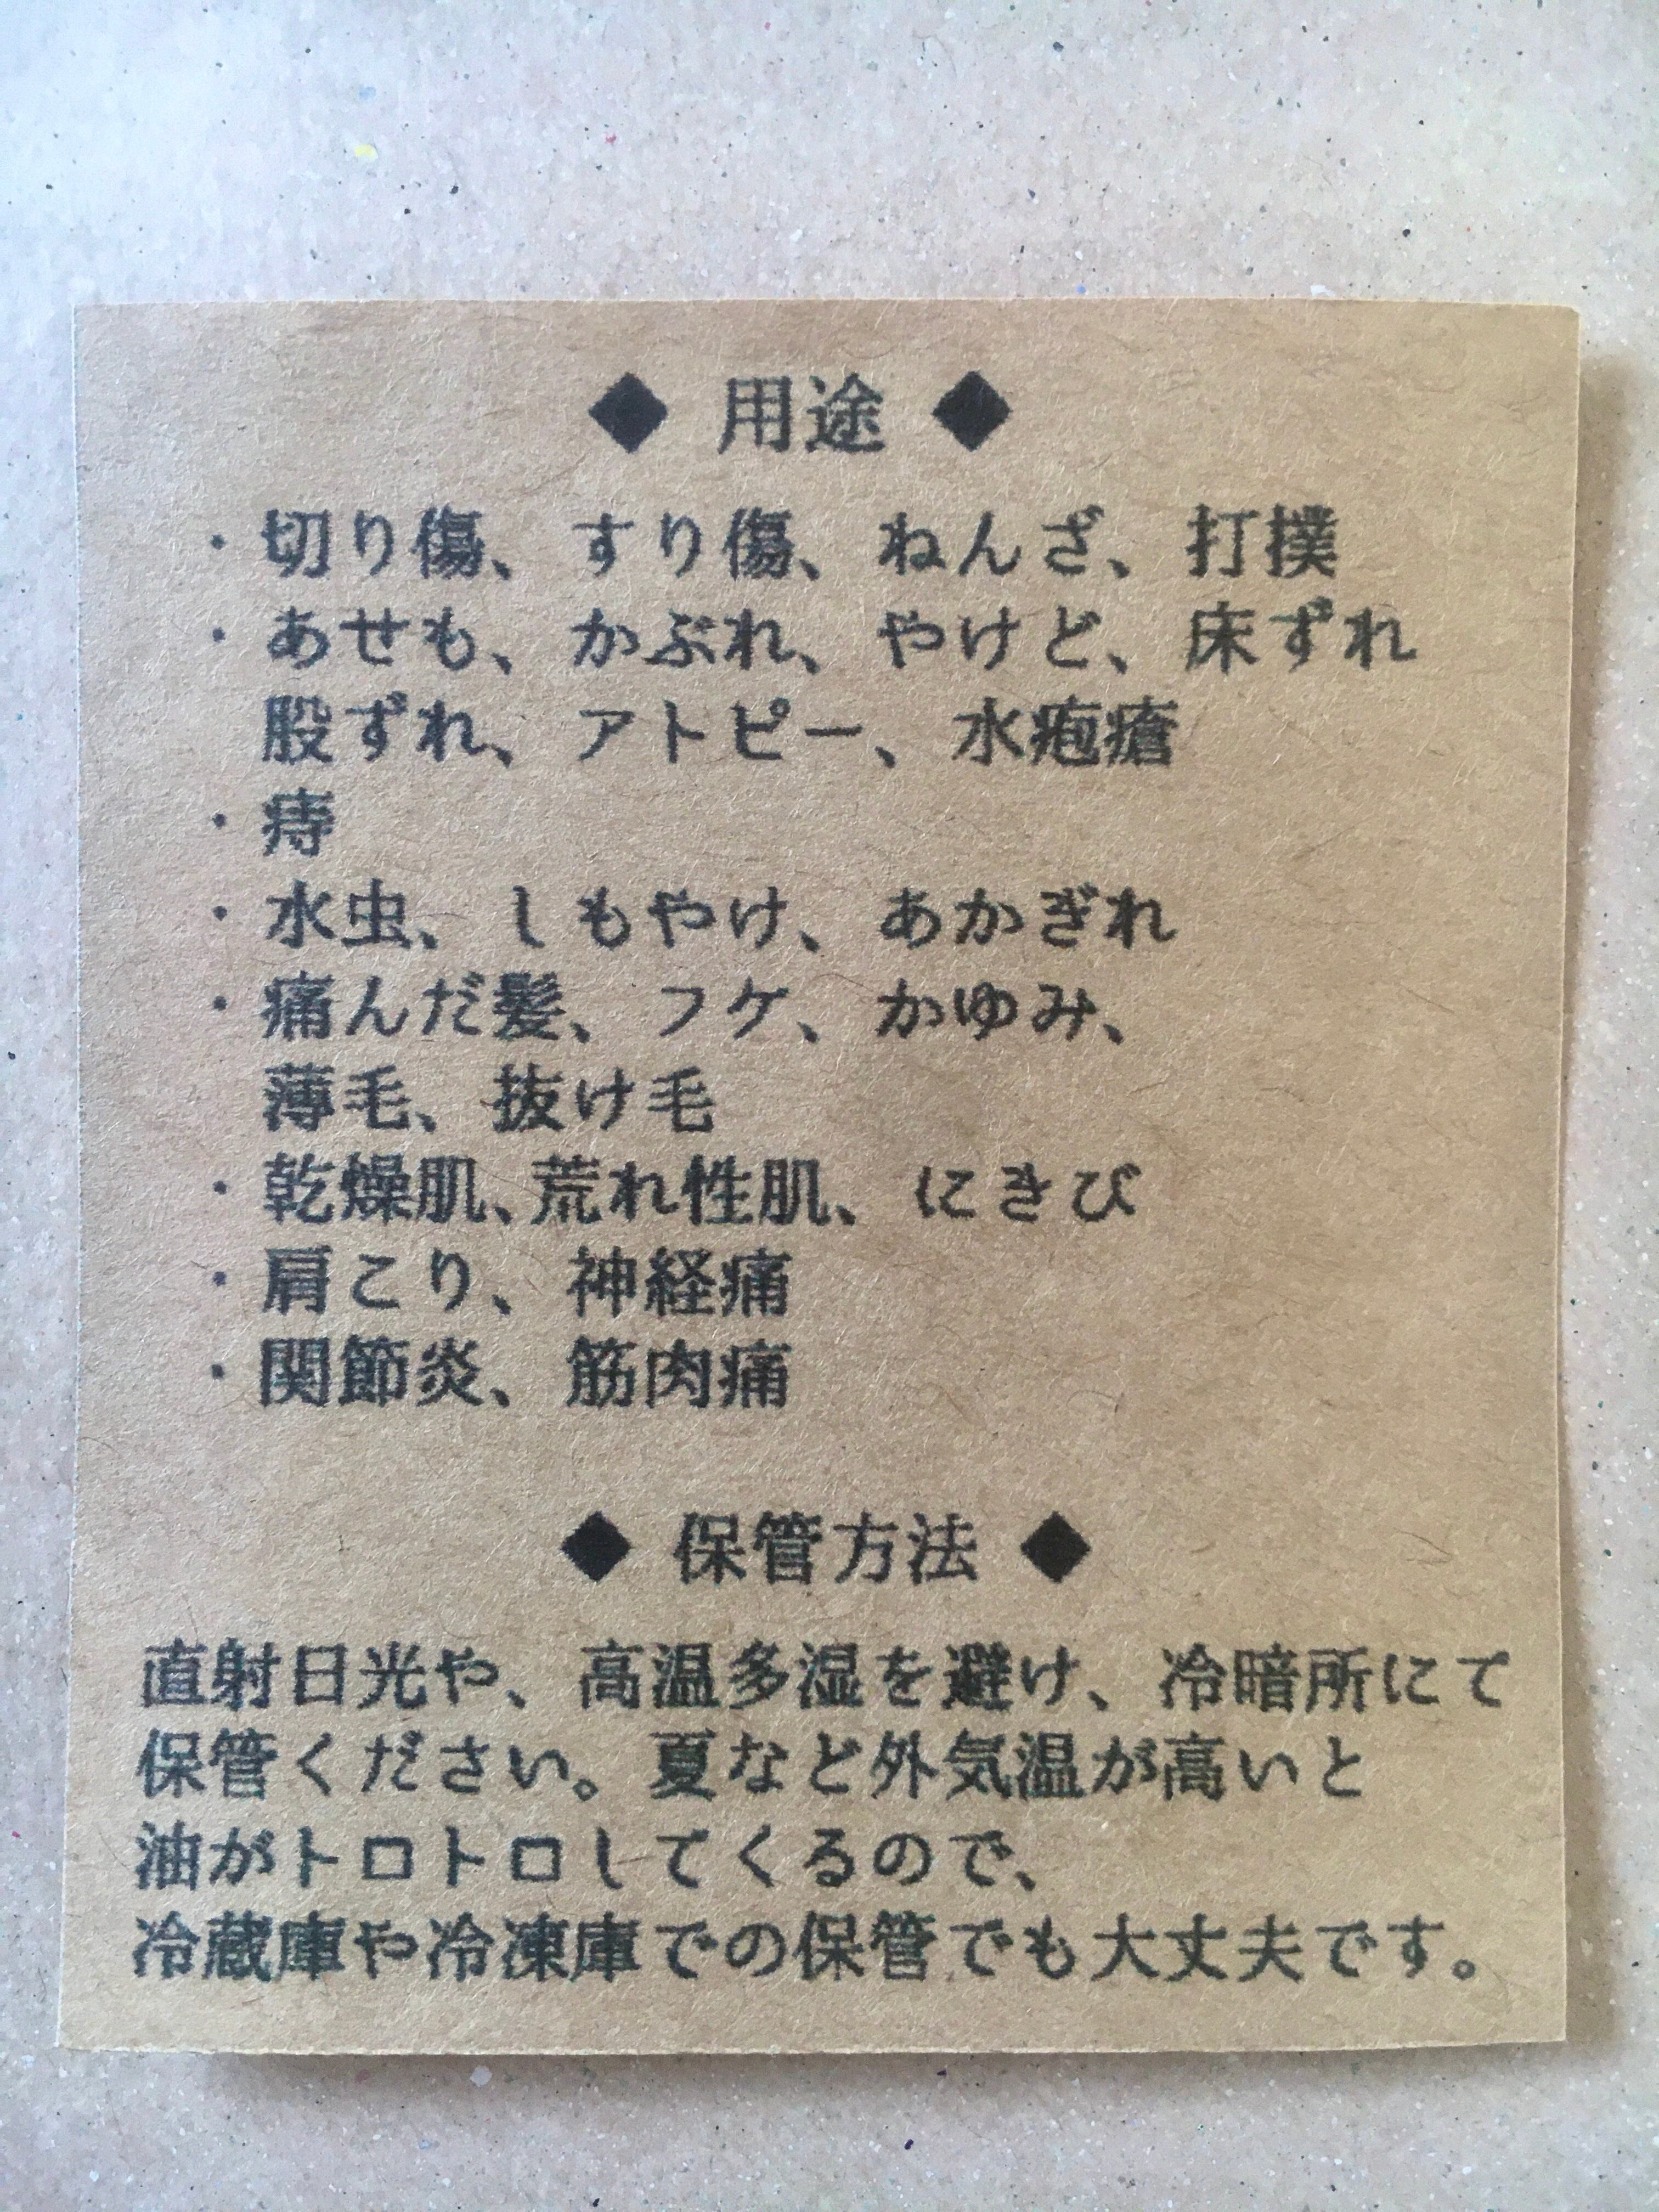 ◆ 用途 ◆
・切り傷、すり傷、ねんざ、打撲
・あせも、かぶれ、やけど、床ずれ
股ずれ、アトピー、水疱瘡
・痔
・水虫、しもやけ、あかぎれ
・痛んだ髪、フケ、かゆみ、
薄毛、抜け毛
・乾燥肌、荒れ性肌、にきび
・肩こり、神経痛
・関節炎、筋肉痛
◆ 保管方法 ◆
直射日光や、高温多湿を避け、冷暗所にて
保管ください。夏など外気温が高いと
油がトロトロしてくるので、
冷蔵庫や冷凍庫での保管でも大丈夫です。